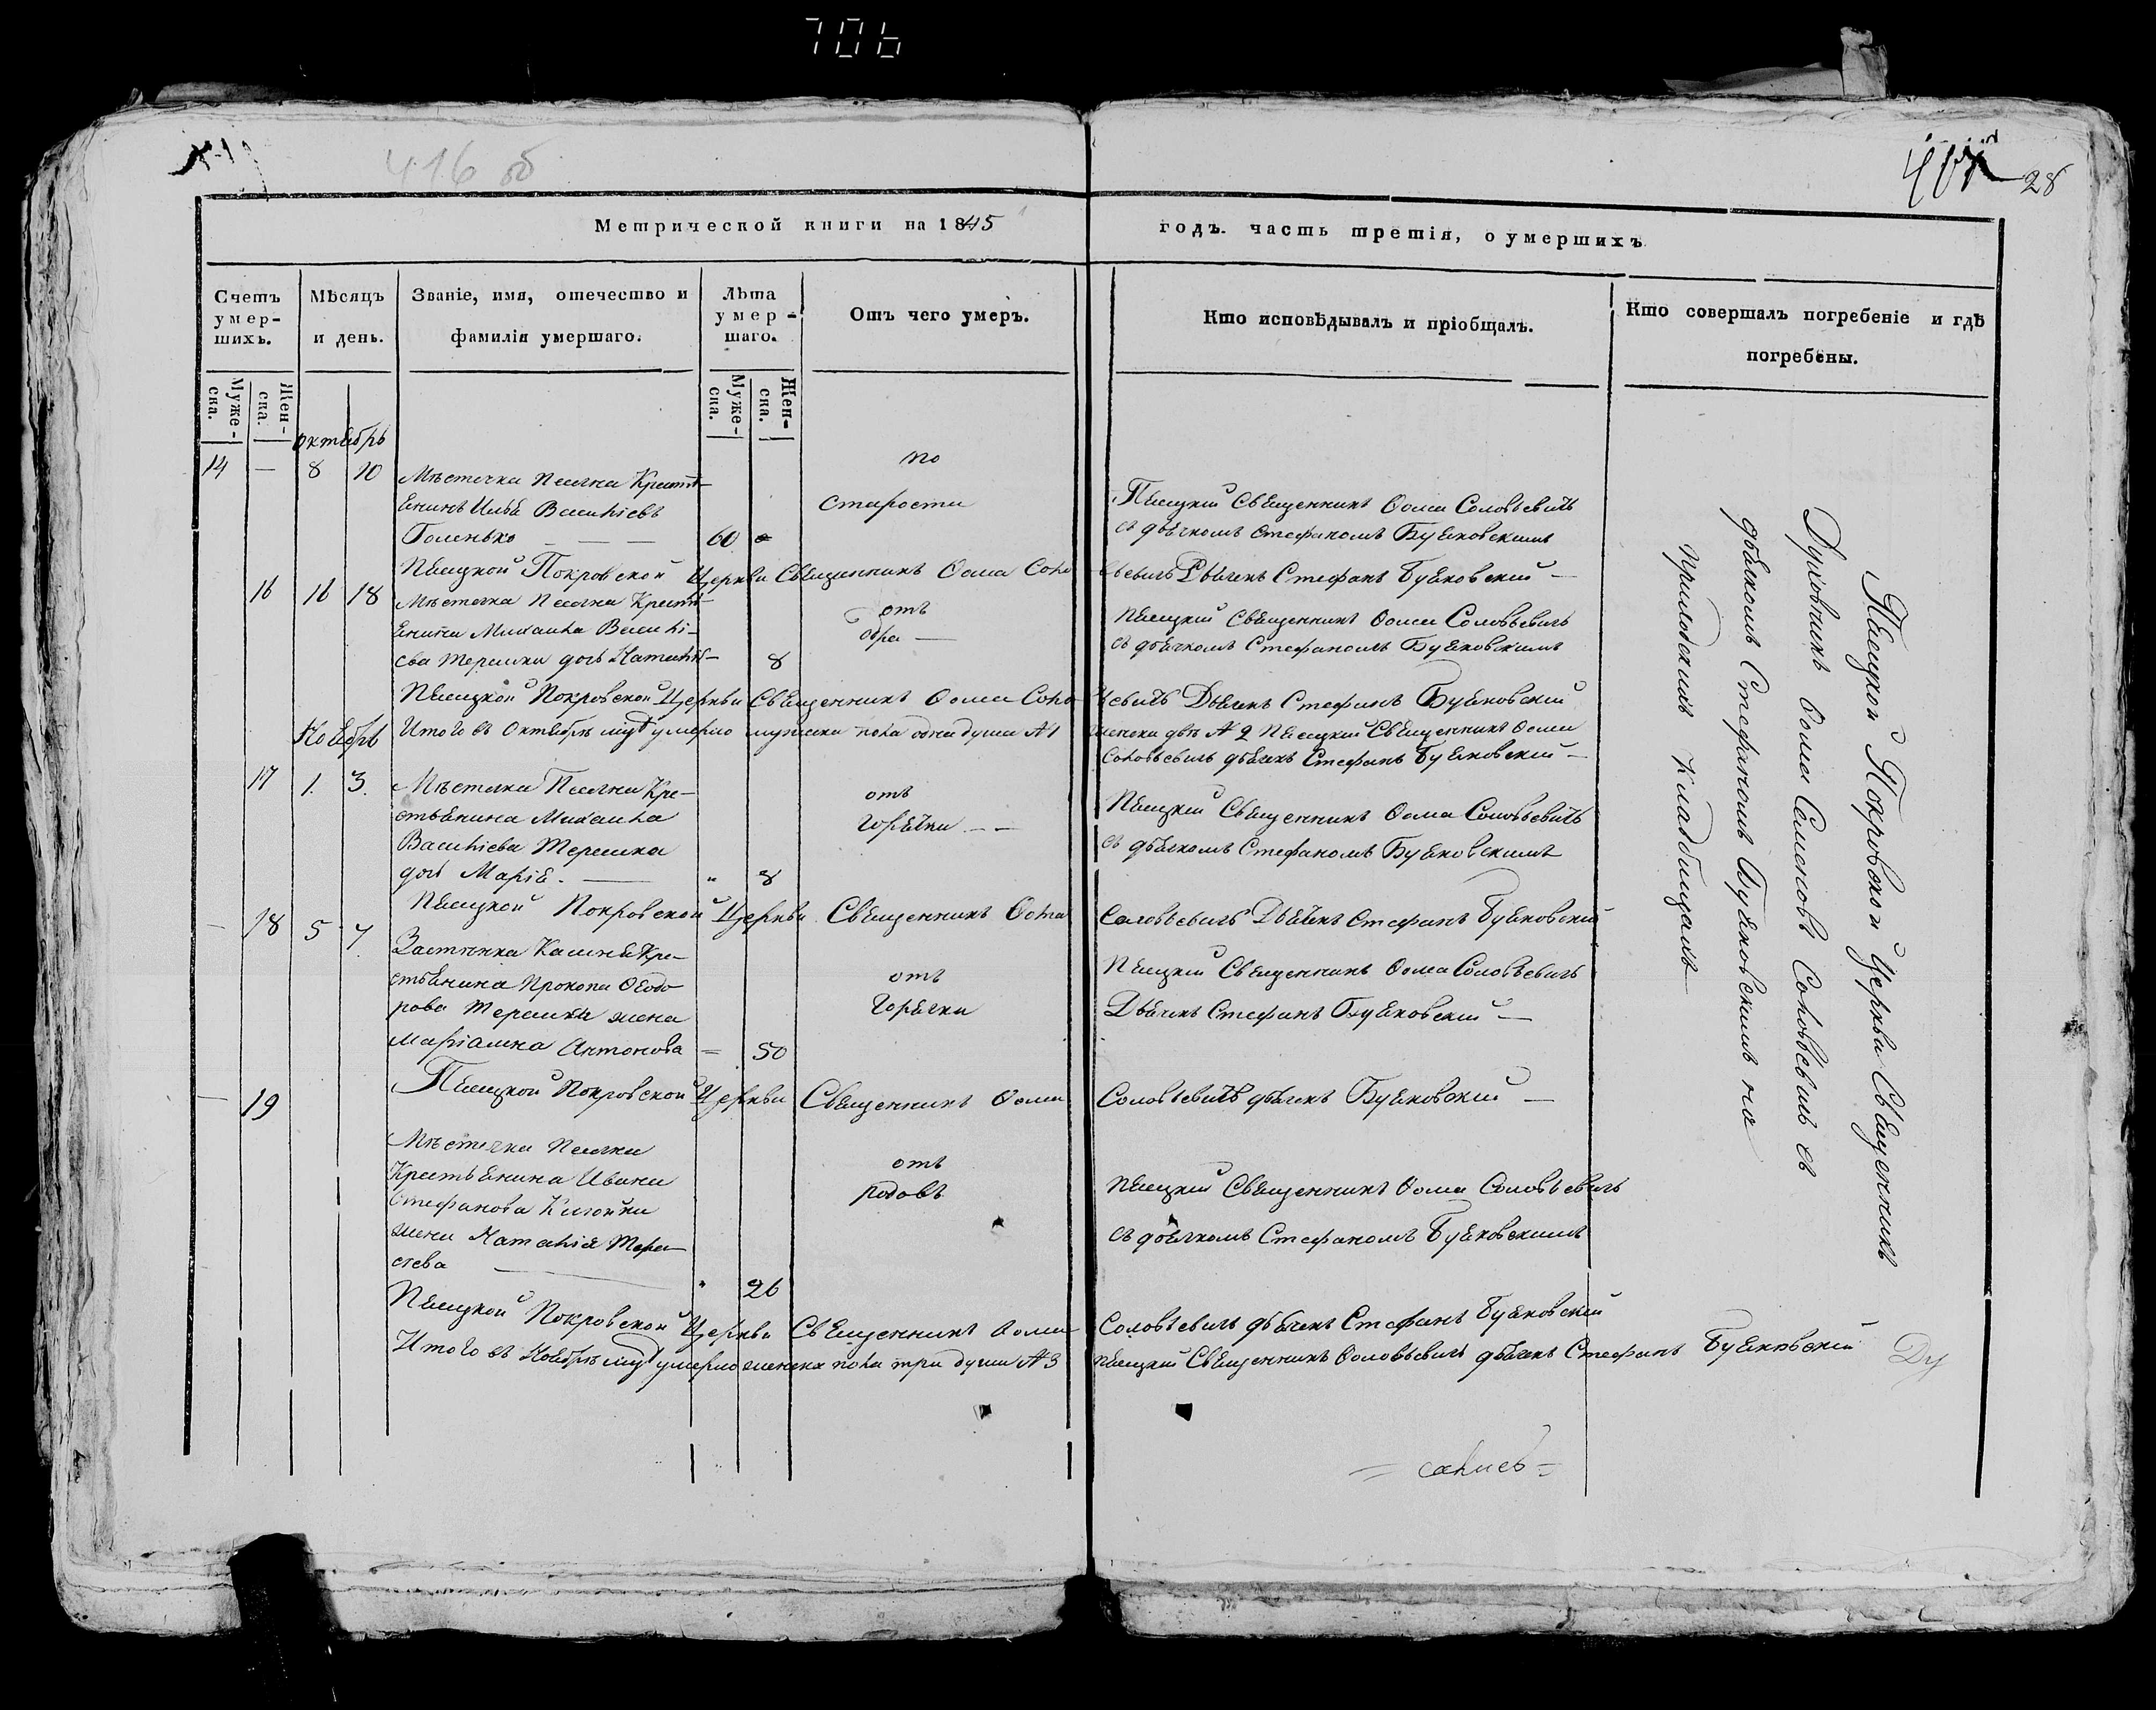 706
416 об
28
Метрической книги на 1845
годъ. часть третія, о умершихъ
Счетъ умер-шихъ.
Мѣсяцъ и день.
Званіе, имя, отечество и фамилія умершаго.
Лѣта умер-шаго.
Отъ чего умеръ.
Кто исповѣдывалъ и пріобщалъ.
Кто совершалъ погребеніе и гдѣ погребены.
Муже-ска.
Жен-ска.
Муже-ска.
Жен-ска.
октябрь
14 — 8 10
Мѣстечка Песчка Крестья
янинъ Илья Васильевъ
Голенько — — —
60
по
старости
Пѣсецкій Священникъ Ѳома Соловьевичъ
съ дьячкомъ Стефаномъ Буяковскимъ
Пѣсецкой Покровской Церкви Священникъ Ѳома Соло
вьевичъ Дьячекъ Стефанъ Буяковский —
16 16 18
Мѣстечка Песчка Крестья
янина Михаила Василь-
ева Терешки дочь Наталья
8
отъ
Пѣсецкій Священникъ Ѳома Соловьевичъ
съ дьячкомъ Стефаномъ Буяковскимъ
Пѣсецкой Покровской Церкви Священникъ Ѳома Соло
вьевичъ Дьячекъ Стефанъ Буяковский
Итого въ Октябрѣ мцѣ умерло мужеска пола одна душа № 1
женска двѣ № 2 Пѣсецкий Священникъ Ѳома
Соловьевичъ дьячекъ Стефанъ Буяковский —
Ноябрь
17 1. 3.
Мѣстечка Песчка Кре-
стьянина Михаила
Васильева Терешка
дочь Марія. —
" 8
отъ
горячки — —
Пѣсецкій Священникъ Ѳома Соловьевичъ
съ дьячкомъ Стефаномъ Буяковскимъ
Пѣсецкой Покровской Церкви Священникъ Ѳома
Соловьевичъ Дьячекъ Стефанъ Буяковский
— 18 5 7.
Застѣнка Кре-
стьянина Прокопа Ѳеодо
рова Терешки жена
Маріамна Антонова
= 50
отъ
Горячки
Пѣсецкій Священникъ Ѳома Соловьевичъ
Дьячекъ Стефанъ Буяковский —
Пѣсецкой Покровской Церкви Священникъ Ѳома
Соловьевичъ дьячекъ Буяковский —
— 19
Мѣстечка Песчка
Крестьянина Ивана
Стефанова
жена Наталія
" 26
отъ
родовъ
Пѣсецкій Священникъ Ѳома Соловьевичъ
съ дьячкомъ Стефаномъ Буяковскимъ
Пѣсецкой Покровской Церкви Священникъ Ѳома
Соловьевичъ дьячекъ Стефанъ Буяковский
Итого въ Ноябрѣ мцѣ умерло женска пола три души № 3
Пѣсецкий Священникъ Соловьевичъ дьячекъ Стефанъ Буяковский
Ду
Пѣсецкой Покровской Церкви Священникъ
Духовникъ Ѳома Семеновъ Соловьевичъ съ
дьячкомъ Стефаномъ Буяковскимъ на
приходскихъ кладбищахъ